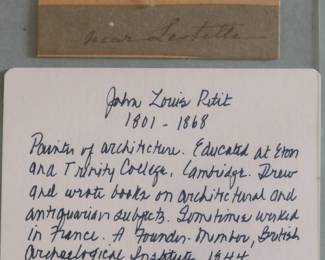 near Lestelle
John Louis Petit
1801 - 1868
Painter of architecture. Educated at Eton
and Trinity College, Cambridge. Drew
and wrote books on architectural and
antiquarian subjects. Sometimes worked
in France. A Founder-Member, British
Archaeological Institute, 1844